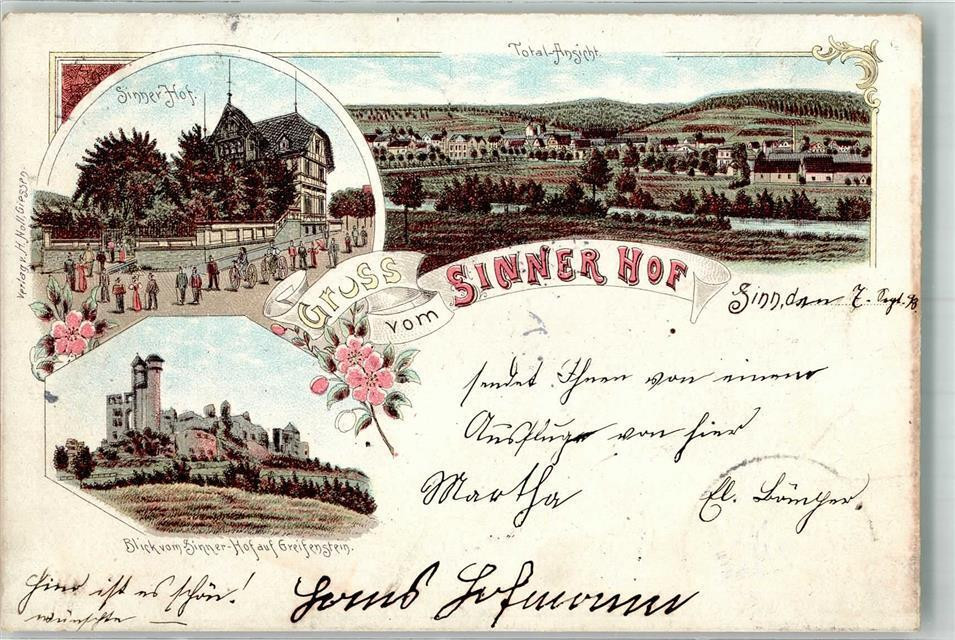 Total-Ansicht.
Sinner Hof.
Verlag v. H. Noll, Giessen
Gruss
vom
SINNER HOF
Sinn, den 7. Sept. 98
sendet Ihnen von einem
Ausfluge von hier
Martha
El.
Blick vom Sinner-Hof auf Greifenstein.
Hier ist es schön!
wünschte
Hans Hofmann